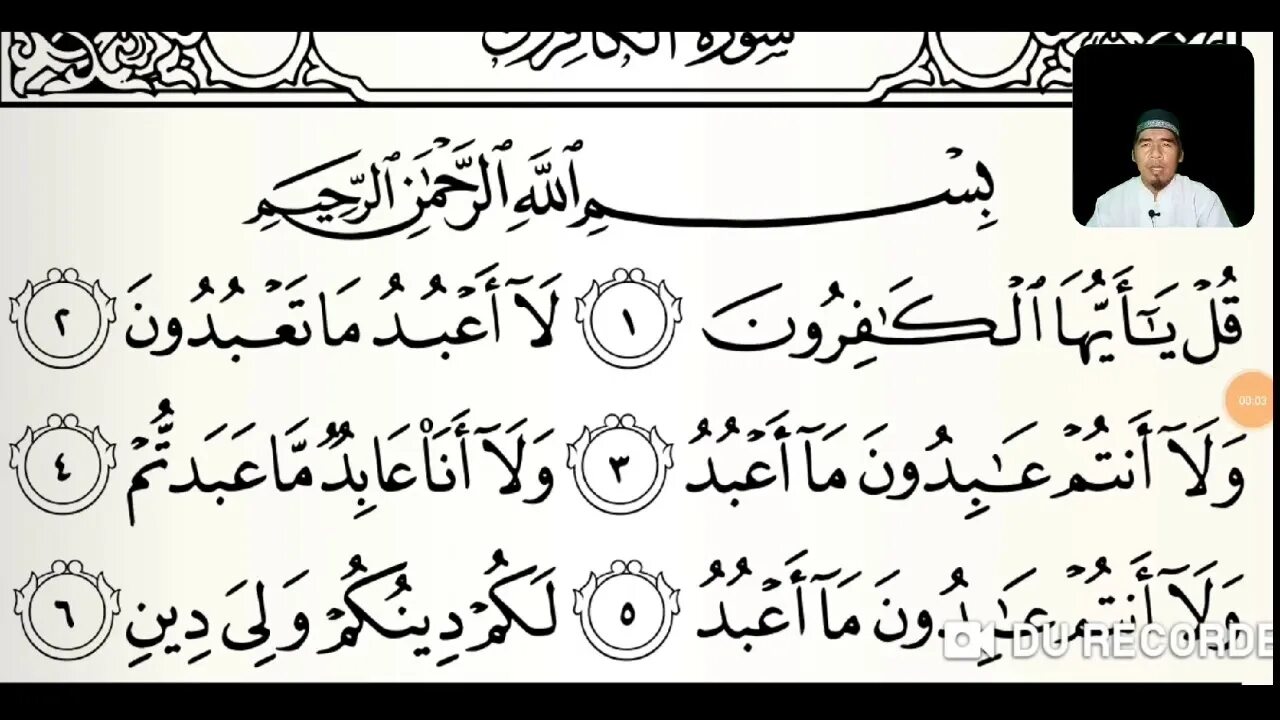 سورة الكافرون
بِسْمِ ٱللَّهِ ٱلرَّحْمَٰنِ ٱلرَّحِيمِ
قُلْ يَٰٓأَيُّهَا ٱلْكَٰفِرُونَ ١ لَآ أَعْبُدُ مَا تَعْبُدُونَ ٢
00:03
وَلَآ أَنتُمْ عَٰبِدُونَ مَآ أَعْبُدُ ٣ وَلَآ أَنَا۠ عَابِدٌ مَّا عَبَدتُّمْ ٤
وَلَآ أَنتُمْ عَٰبِدُونَ مَآ أَعْبُدُ ٥ لَكُمْ دِينُكُمْ وَلِىَ دِينِ ٦
DU RECORDE